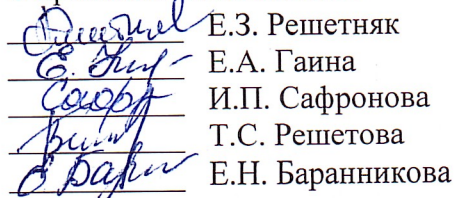 Е.З. Решетняк
Е.А. Гаина
И.П. Сафронова
Т.С. Решетова
Е.Н. Баранникова